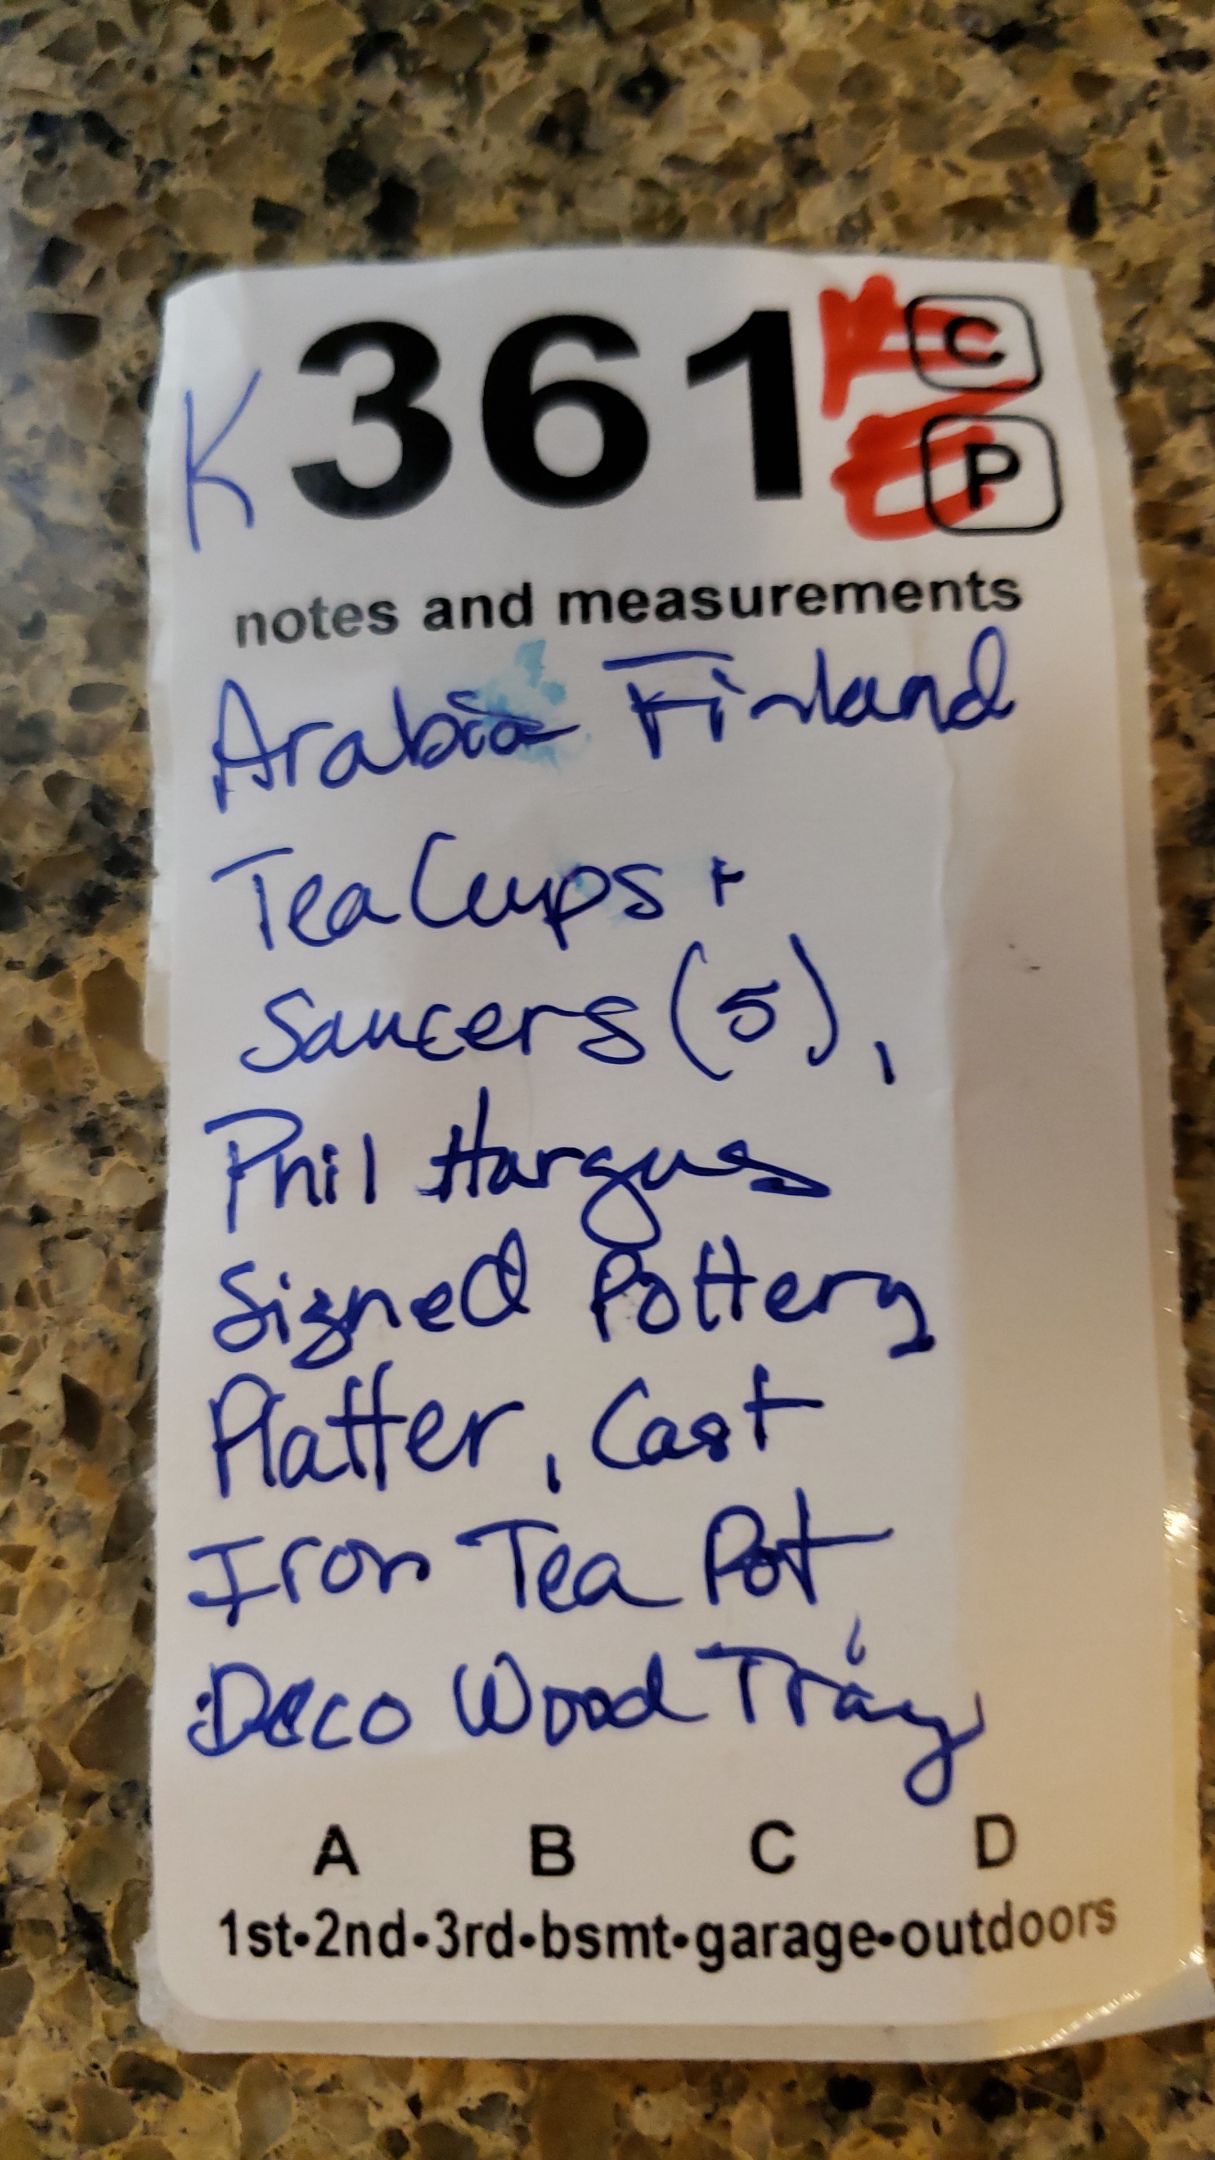 K 361 C
P
notes and measurements
Arabia Finland
Tea Cups +
Saucers (5),
Phil Hargus
Signed Pottery
Platter, Cast
Iron Tea Pot,
Deco Wood Tray
A B C D
1st•2nd•3rd•bsmt•garage•outdoors